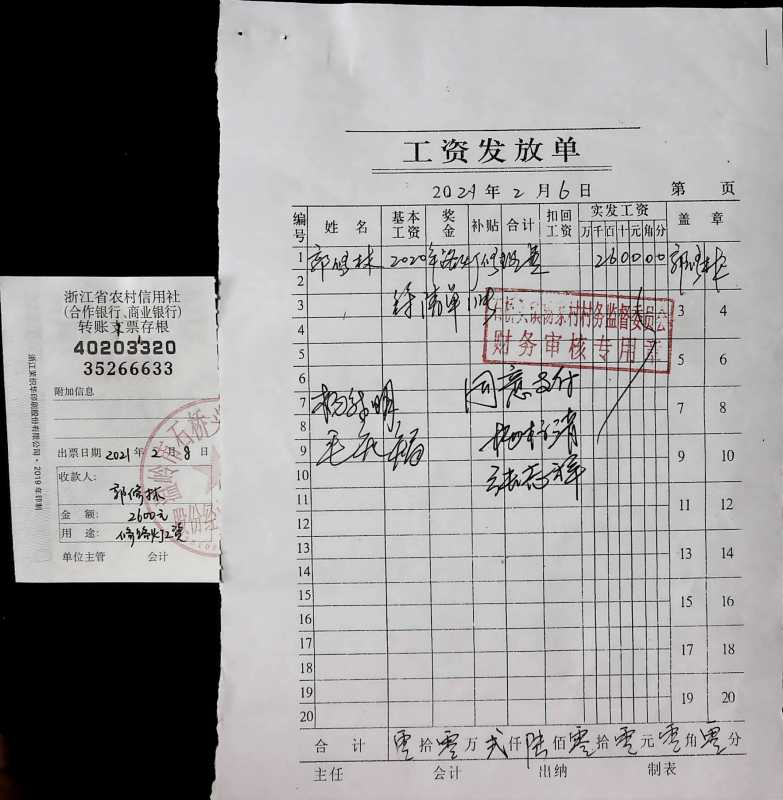 浙江省农村信用社
(合作银行、商业银行)
转账支票存根
40203320
35266633
附加信息
出票日期 2021 年 2 月 8 日
收款人:
郭修林
金 额: 2600元
用 途: 修路灯工资
单位主管 会计
工资发放单
2021 年 2 月 6 日 第 页
编号 姓 名 基本工资 奖金 补贴 合计 扣回工资 实发工资 盖 章
万 千 百 十 元 角 分
1 郭修林 2020年路灯修理费 260000 郭修林
2
3 3 4
村务监督委员会
财务审核专用章
4
5 5 6
6
同意支付
7 7 8
8
9 9 10
10
11 11 12
12
13 13 14
14
15 15 16
16
17 17 18
18
19 19 20
20
合 计 零 拾 零 万 贰 仟 陆 佰 零 拾 零 元 零 角 零 分
主任 会计 出纳 制表